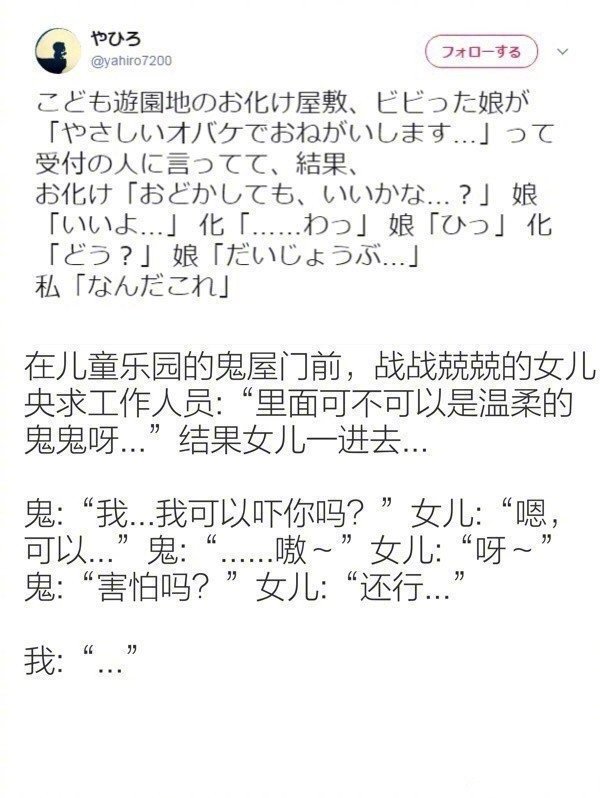 やひろ
@yahiro7200
フォローする
こども遊園地のお化け屋敷、ビビった娘が
「やさしいオバケでおねがいします...」って
受付の人に言ってて、結果、
お化け「おどかしても、いいかな...？」 娘
「いいよ...」 化「......わっ」 娘「ひっ」 化
「どう？」 娘「だいじょうぶ...」
私「なんだこれ」
在儿童乐园的鬼屋门前，战战兢兢的女儿
央求工作人员:“里面可不可以是温柔的
鬼鬼呀...”结果女儿一进去...
鬼:“我...我可以吓你吗？”女儿:“嗯，
可以...”鬼:“......嗷～”女儿:“呀～”
鬼:“害怕吗？”女儿:“还行...”
我:“...”